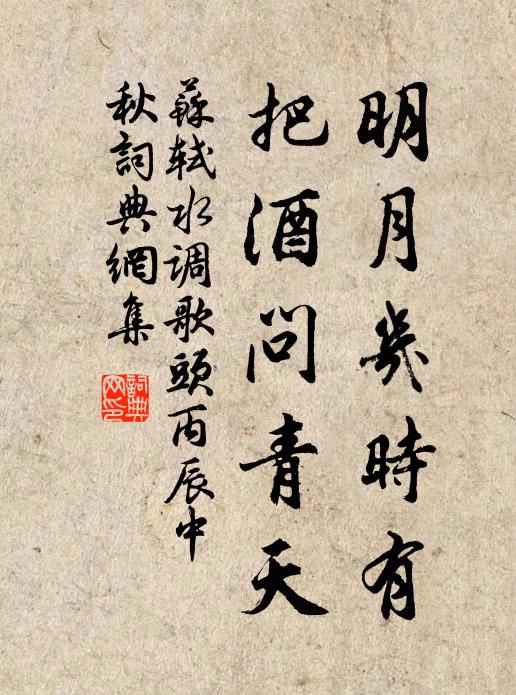 明月幾時有
把酒問青天
蘇軾水调歌頭丙辰中
秋詞典網集
詞典网印